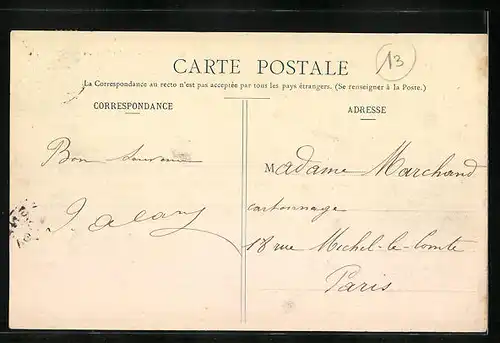 CARTE POSTALE
13
La Correspondance au recto n'est pas acceptée par tous les pays étrangers. (Se renseigner à la Poste.)
CORRESPONDANCE
ADRESSE
Bon Souvenir
Madame Marchand
cartonnage
18 rue Michel-le-Comte
Paris